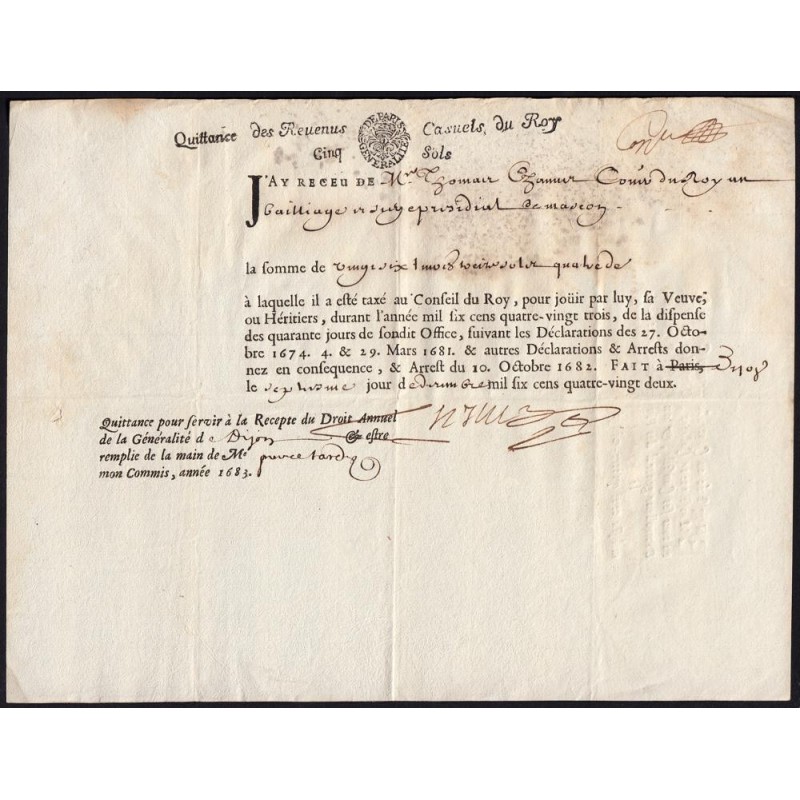 Quittance des Reuenus Casuels, du Roy
DE PARIS GENERALITE
Cinq Sols
J'AY RECEU DE Mre Thomas Chanuer Conser du Roy au
bailliage et siege presidial de mascon
la somme de vingt six # trois solz quatre de
à laquelle il a esté taxé au Conseil du Roy, pour joüir par luy, sa Veuve,
ou Héritiers, durant l'année mil six cens quatre-vingt trois, de la dispense
des quarante jours de sondit Office, suivant les Déclarations des 27. Octo-
bre 1674. 4. & 29. Mars 1681. & autres Déclarations & Arrests don-
nez en consequence, & Arrest du 10. Octobre 1682. FAIT à Paris, Dijon
le septiesme jour de decembre mil six cens quatre-vingt deux.
Quittance pour servir à la Recepte du Droit Annuel
de la Généralité de Dijon & estre
remplie de la main de Me
mon Commis, année 1683.